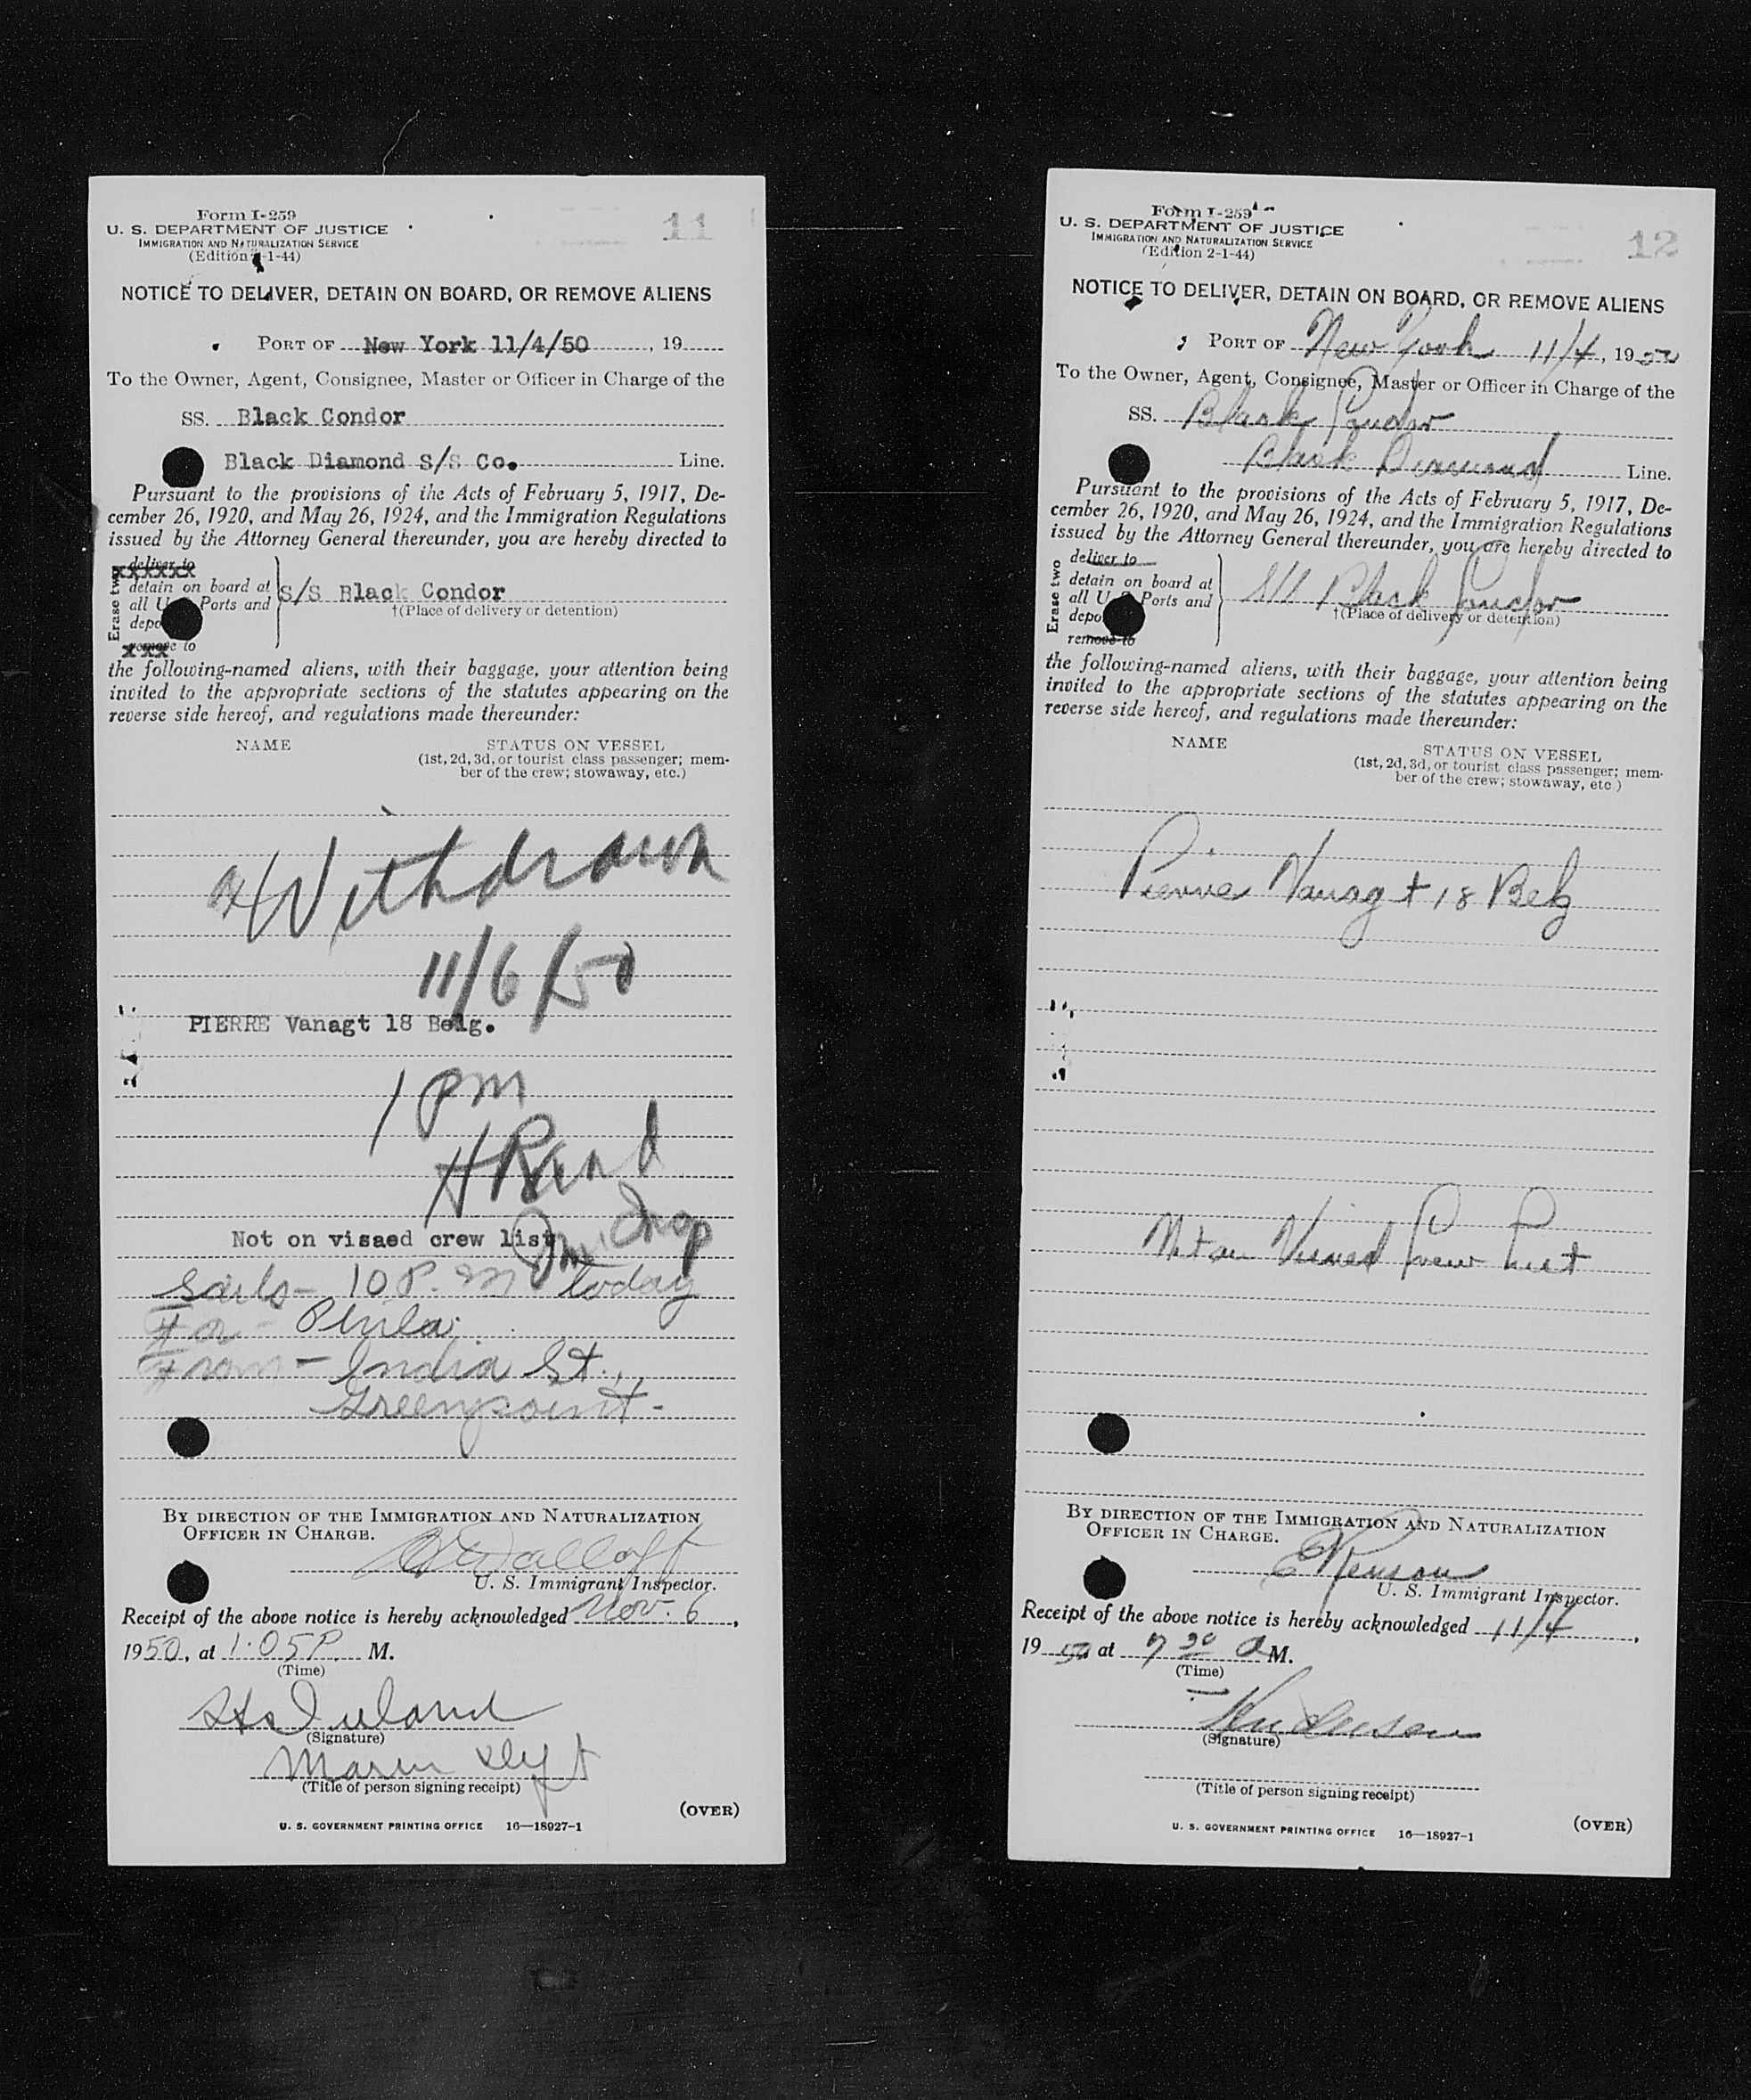 Form I-259
U. S. DEPARTMENT OF JUSTICE
IMMIGRATION AND NATURALIZATION SERVICE
(Edition -1-44)
11
NOTICE TO DELIVER, DETAIN ON BOARD, OR REMOVE ALIENS
PORT OF New York 11/4/50, 19
To the Owner, Agent, Consignee, Master or Officer in Charge of the
SS. Black Condor
Black Diamond S/S Co. Line.
Pursuant to the provisions of the Acts of February 5, 1917, De-
cember 26, 1920, and May 26, 1924, and the Immigration Regulations
issued by the Attorney General thereunder, you are hereby directed to
Erase two
deliver to
detain on board at
all U Ports and
depo
remove to
S/S Black Condor
†(Place of delivery or detention)
the following-named aliens, with their baggage, your attention being
invited to the appropriate sections of the statutes appearing on the
reverse side hereof, and regulations made thereunder:
NAME
STATUS ON VESSEL
(1st, 2d, 3d, or tourist class passenger; mem-
ber of the crew; stowaway, etc.)
Withdrawn
11/6/50
PIERRE Vanagt 18 Belg.
1 pm
H Rand
Not on visaed crew list
Imm. Insp
Sails - 10 P. M today
For - Phila.
From - India St.,
Greenpoint -
BY DIRECTION OF THE IMMIGRATION AND NATURALIZATION
OFFICER IN CHARGE.
U. S. Immigrant Inspector.
Receipt of the above notice is hereby acknowledged Nov. 6,
1950, at 1:05 P. M.
(Time)
(Signature)
(Title of person signing receipt)
(OVER)
U. S. GOVERNMENT PRINTING OFFICE 16—18927-1
Form I-259
U. S. DEPARTMENT OF JUSTICE
IMMIGRATION AND NATURALIZATION SERVICE
(Edition 2-1-44)
12
NOTICE TO DELIVER, DETAIN ON BOARD, OR REMOVE ALIENS
PORT OF New York 11/4, 1950
To the Owner, Agent, Consignee, Master or Officer in Charge of the
SS. Black Condor
Black Diamond Line.
Pursuant to the provisions of the Acts of February 5, 1917, De-
cember 26, 1920, and May 26, 1924, and the Immigration Regulations
issued by the Attorney General thereunder, you are hereby directed to
Erase two
deliver to
detain on board at
all U Ports and
depo
remove to
S/S Black Condor
†(Place of delivery or detention)
the following-named aliens, with their baggage, your attention being
invited to the appropriate sections of the statutes appearing on the
reverse side hereof, and regulations made thereunder:
NAME
STATUS ON VESSEL
(1st, 2d, 3d, or tourist class passenger; mem-
ber of the crew; stowaway, etc.)
Pierre Vanagt 18 Belg
Not on Visaed Crew List
BY DIRECTION OF THE IMMIGRATION AND NATURALIZATION
OFFICER IN CHARGE.
U. S. Immigrant Inspector.
Receipt of the above notice is hereby acknowledged 11/4,
1950 at 7 30 A M.
(Time)
(Signature)
(Title of person signing receipt)
(OVER)
U. S. GOVERNMENT PRINTING OFFICE 16—18927-1